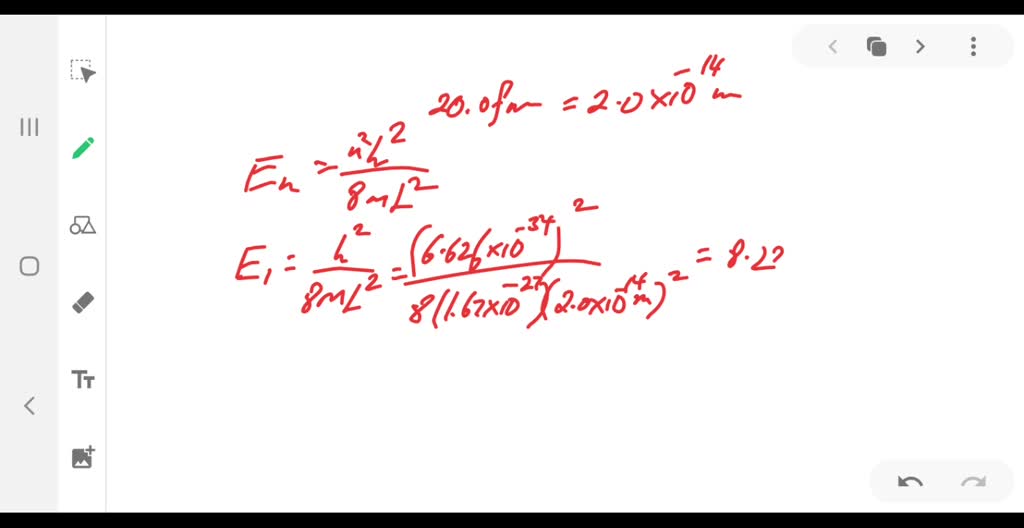 20.0fm = 2.0×10⁻¹⁴ m
Eₙ = n²h² / 8mL²
E₁ = h² / 8mL² = (6.626×10⁻³⁴)² / 8(1.67×10⁻²⁷)(2.0×10⁻¹⁴m)² = 8.22
Tт